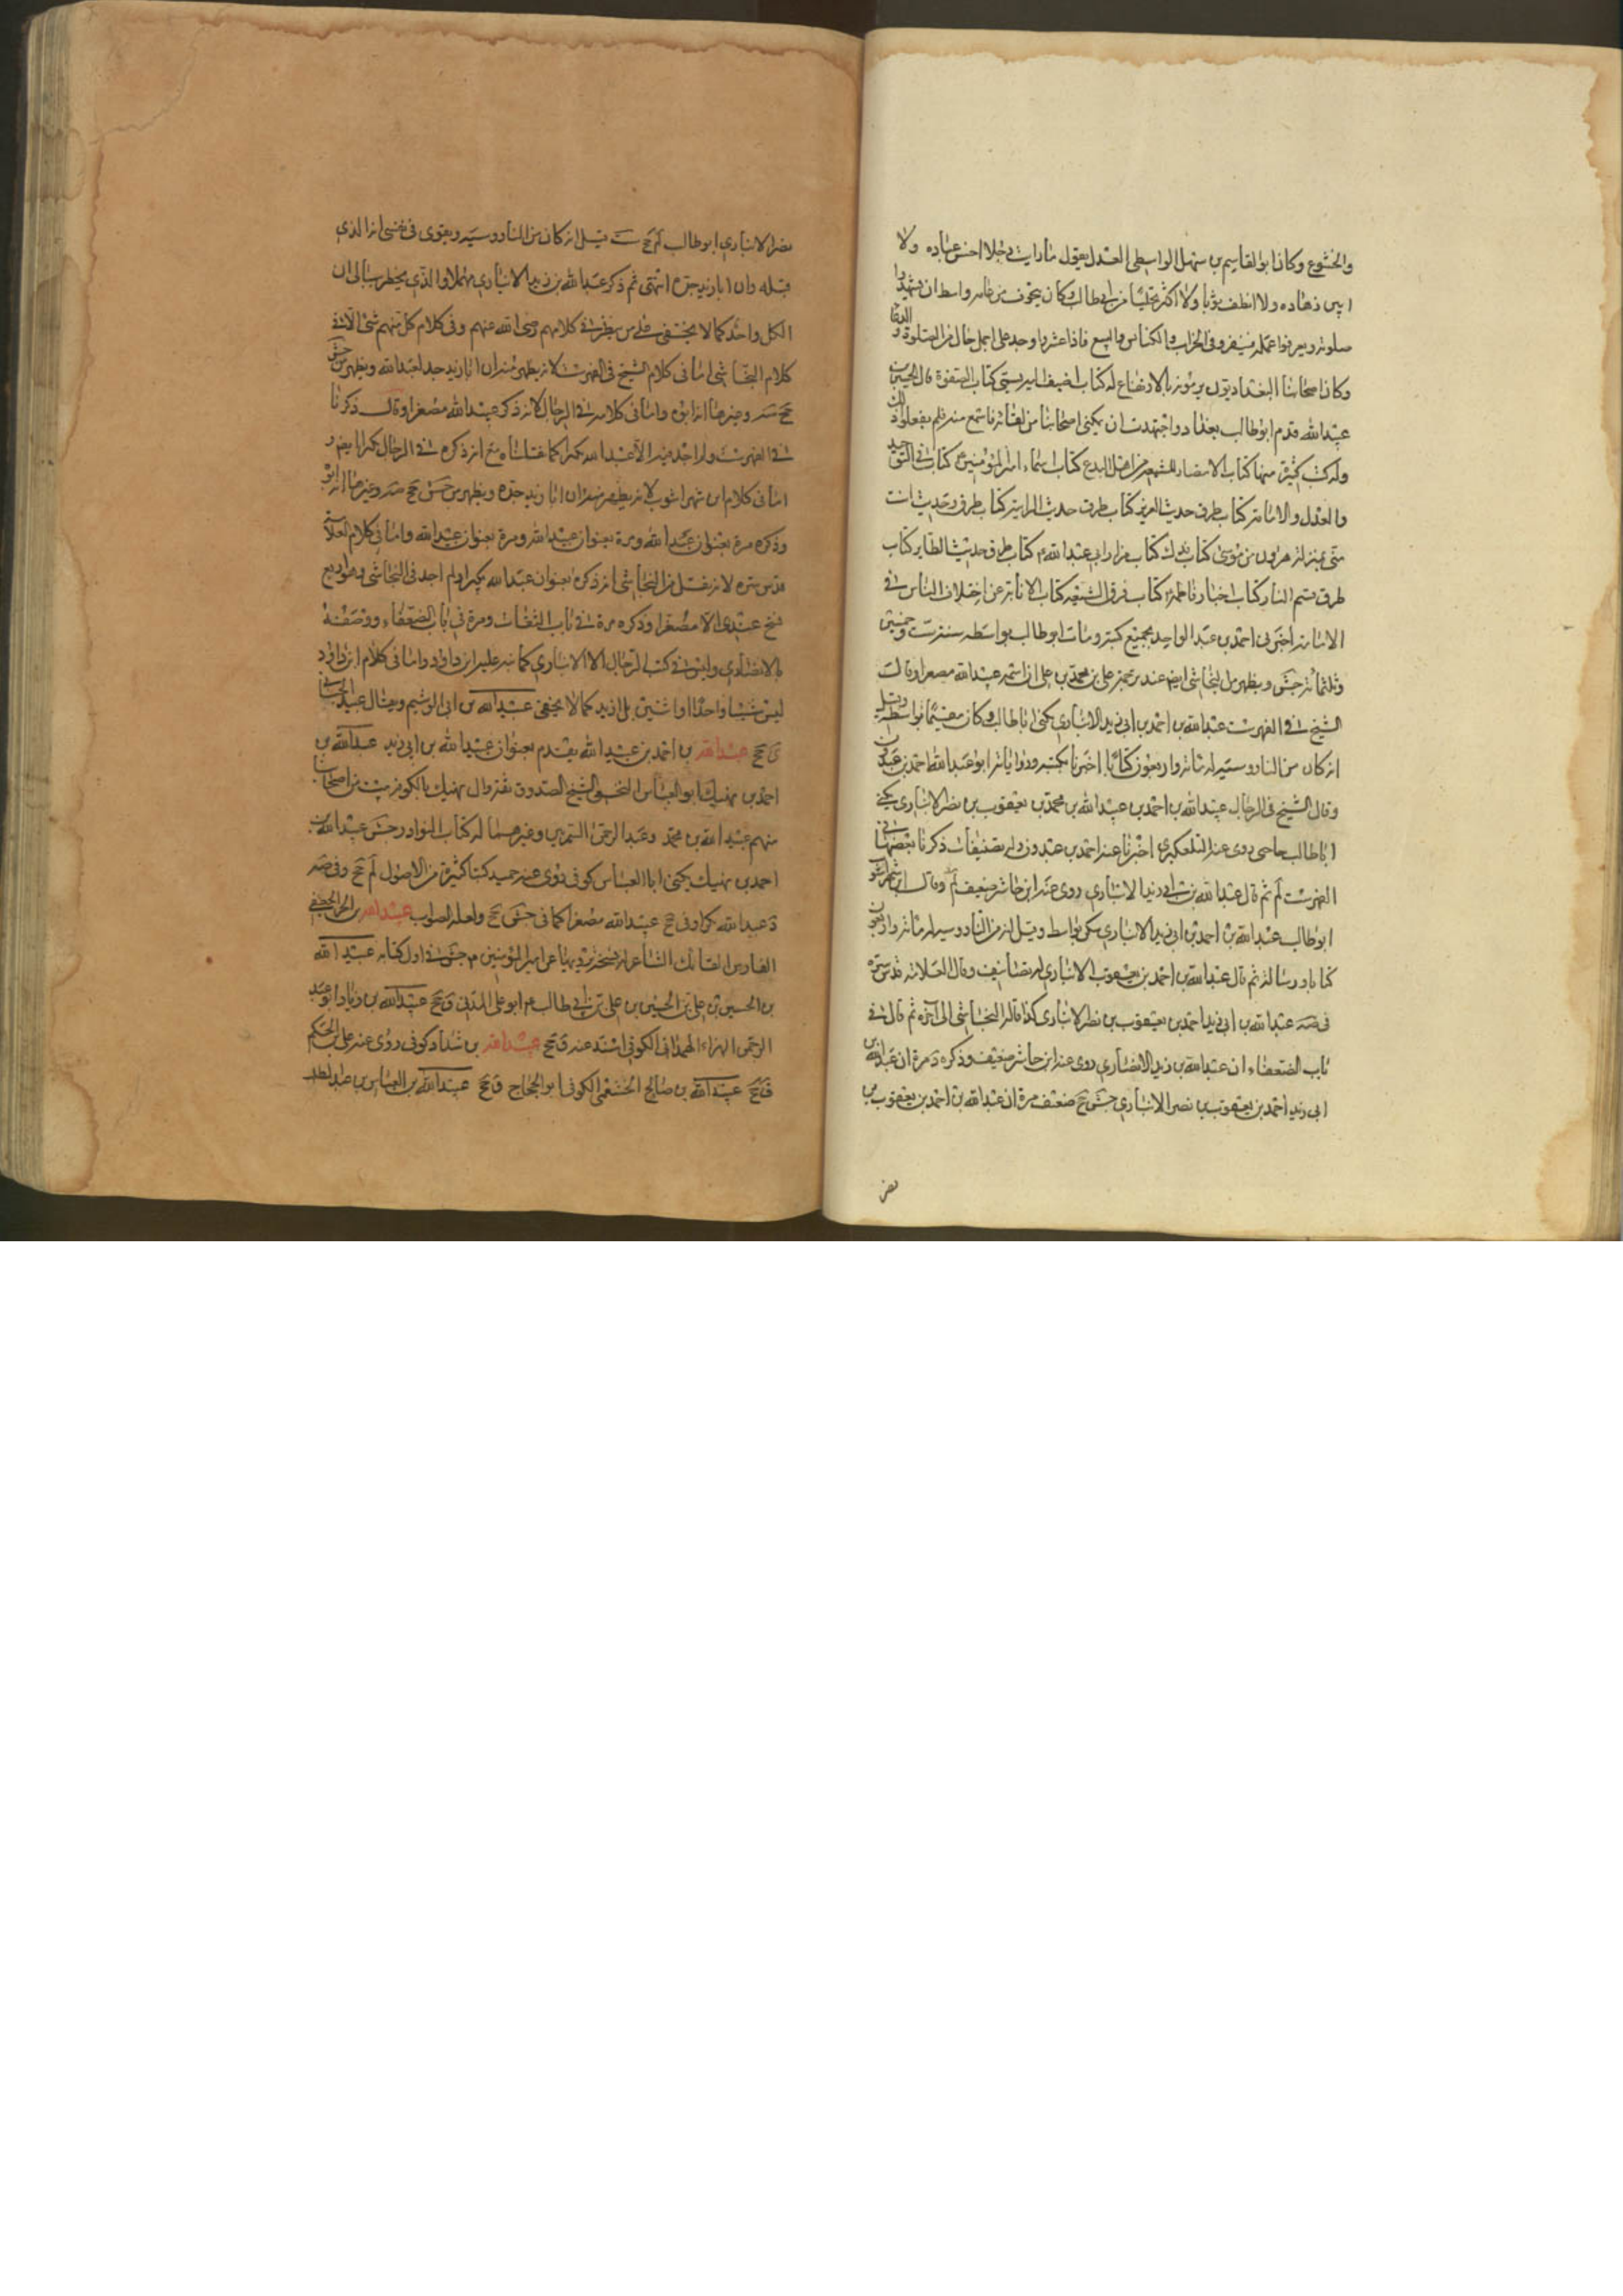 والخشوع وكان ابو القاسم بن سهل الواسطى العدل يقول ما رايت رجلا احسن عباده ولا
ابين زهاده ولا انظف ثوبا ولا اكثر تحليا من ابى طالب وكان يتخوف من عامه واسط ان يشهدوا
صلوته ويعرفوا عمله فينفرد فى الخراب والكنايس والبيع فاذا عثر به وجد على اجمل حال من الصلوة والدعا
وكان اصحابنا البغداديون يرمونه بالارتفاع له كتاب اضيف اليه يسمى كتاب الصفوة قال الحسين بن
عبيد الله قدم ابو طالب بغداد واجتهدت ان يمكننى اصحابنا من لقائه فاسمع منه فلم يفعلوا ذلك
وله كتب كثيرة منها كتاب الانتصار للشيعه من اهل البدع كتاب اسماء امير المؤمنين كتاب فى التوحيد
والعدل والامامة كتاب طرق حديث الغدير كتاب طرق حديث الراية كتاب طرق حديث انت
منى بمنزلة هرون من موسى كتاب فدك كتاب مزار ابى عبد الله كتاب طرق حديث الطاير كتاب
طرق قسيم النار كتاب اخبار فاطمة كتاب فرق الشيعة كتاب الابانة عن اختلاف الناس فى
الامامة اخبرنى احمد بن عبد الواحد بجميع كتبه ومات ابو طالب بواسط سنة ست وخمسين
وثلثمائة جش ويظهر من النجاشى ايض عند ترجمة على بن محمد بن على ان اسمه عبيد الله مصغرا وقال
الشيخ فى الفهرست عبد الله بن احمد بن ابى زيد الانبارى يكنى ابا طالب وكان مقيما بواسط وقيل
انه كان من الناووسية له مائة واربعون كتابا اخبرنا بكتبه ورواياته ابو عبد الله احمد بن عبدون
وقال الشيخ فى الرجال عبيد الله بن احمد بن عبيد الله بن محمد بن يعقوب بن نصر الانبارى يكنى
ابا طالب خاصى روى عنه التلعكبرى اخبرنا عنه احمد بن عبدون وله تصنيفات ذكرنا بعضها فى
الفهرست لم ثم قال عبد الله بن ابى زيد الانبارى روى عنه ابن حاشر ضعيف لم وقال ابن شهراشوب
ابو طالب عبد الله بن احمد بن ابى زيد الانبارى سكن بواسط وقيل انه من الناووسية له مائة واربعون
كتابا ورسالة ثم قال عبد الله بن احمد بن يعقوب الانبارى له تصانيف وقال العلامة قدس سره
فى صه عبد الله بن ابى زيد احمد بن يعقوب بن نصر الانبارى كذا قاله النجاشى الى اخره ثم قال فى
باب الضعفاء ان عبد الله بن زيد الانصارى روى عنه ابن حاشر ضعيف وذكره د مرة ان عبيد الله بن
ابى زيد احمد بن يعقوب بن نصر الانبارى جش جخ ضعيف مرة ان عبد الله بن احمد بن يعقوب بن
نصر
نصر الانبارى ابو طالب لم جخ ست قيل انه كان من الناووسية ويقوى فى نفسى انه الذى
قبله وان ابا زيد جده انتهى ثم ذكر عبد الله بن زيد الانبارى مهملا والذى يخطر ببالى ان
الكل واحد كما لا يخفى على من ينظر فى كلامهم رضى الله عنهم وفى كلام كل منهم شئ الا فى
كلام النجاشى اما فى كلام الشيخ فى الفهرست لانه يظهر منه ان ابا زيد جد لعبد الله ويظهر من جش
جخ صه وغيرها انه ابوه واما فى كلامه فى الرجال لانه ذكر عبيد الله مصغرا وقال ذكرنا
فى الفهرست ولم اجد فيه الا عبد الله مكبرا كما نقلناه مع انه ذكره فى الرجال مكبرا ايض و
اما فى كلام ابن شهراشوب لانه يظهر منه ان ابا زيد جده ويظهر من جش جخ صه وغيرها انه ابوه
وذكره مرة بعنوان عبد الله ومرة بعنوان عبيد الله واما فى كلام العلامة
قدس سره لانه ينقل من النجاشى انه ذكره بعنوان عبد الله مكبرا ولم اجد فى النجاشى وهو اربع
نسخ عندى الا مصغرا وذكره مرة فى باب الثقات ومرة فى باب الضعفاء ووصفه
بالانصارى وليس فى كتب الرجال الا الانبارى كما نبه عليه ابن داود واما فى كلام ابن داود
ليس شيئا واحدا او اثنين بل ازيد كما لا يخفى عبيد الله بن ابى الوشيم ويقال عبيد
ق جخ عبيد الله بن احمد بن عبيد الله يقدم بعنوان عبيد الله بن ابى زيد عبيد الله بن
احمد بن نهيك ابو العباس النخعى الشيخ الصدوق ثقة وال نهيك بالكوفة بيت من اصحابنا
منهم عبيد الله بن محمد وعبد الرحمن السمريين وغيرهما له كتاب النوادر جش عبيد الله بن
احمد بن نهيك يكنى ابا العباس كوفى روى عنه حميد كتبا كثيرة من الاصول لم جخ وفى صه
د عبد الله مكبرا وفى جخ عبيد الله مصغرا كما فى جش جخ ولعله الصواب عبيد الله بن الحر الجعفى
الفارس الفاتك الشاعر له نسخة يرويها عن امير المؤمنين م جش فى اول كتابه عبيد الله
بن الحسين بن على بن الحسين بن على بن ابى طالب ع ابو على المدنى ق جخ عبيد الله بن زياد ابو عبد
الرحمن الهراء الهمدانى الكوفى اسند عنه ق جخ عبيد الله بن شداد كوفى روى عنه على بن الحكم
ق جخ عبيد الله بن صالح الخثعمى الكوفى ابو الحجاج ق جخ عبيد الله بن العباس بن عبد المطلب